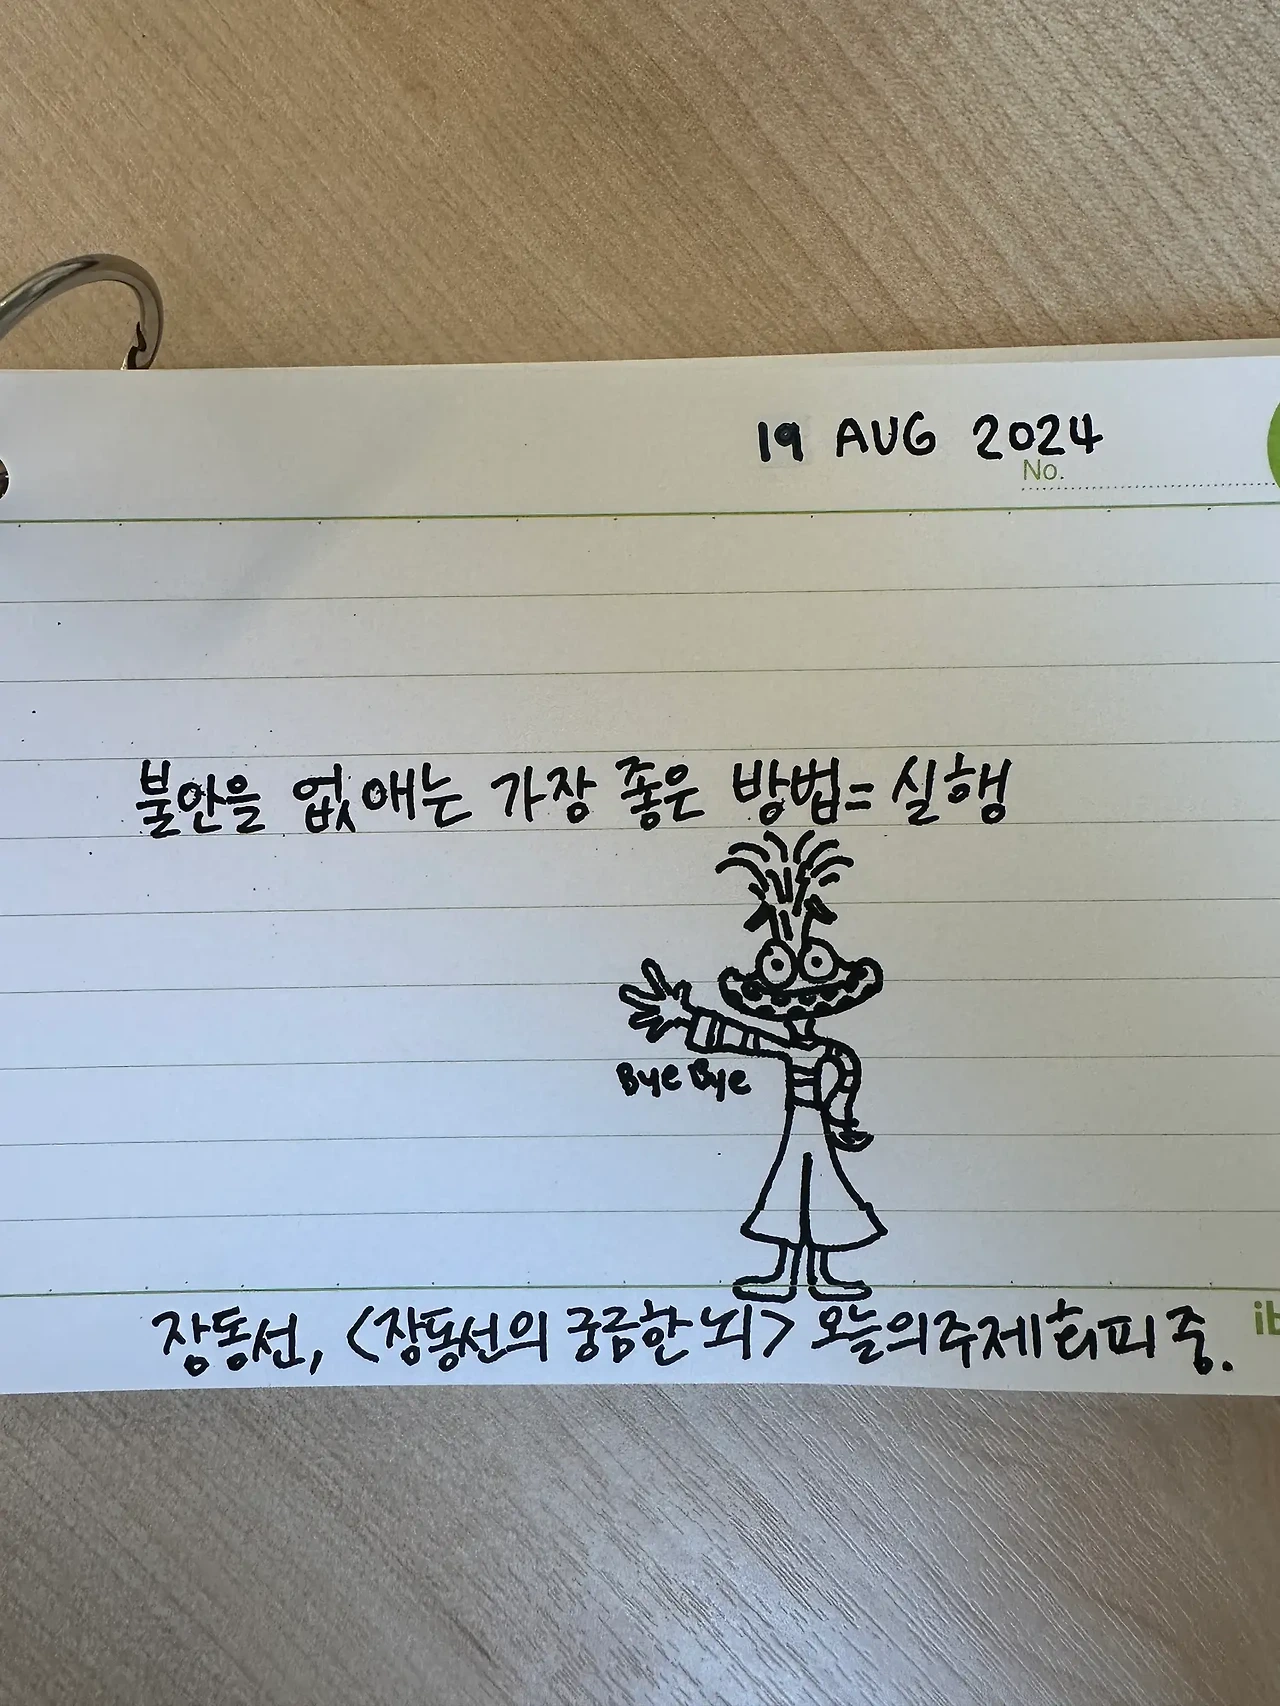 19 AUG 2024
No.
불안을 없애는 가장 좋은 방법= 실행
Bye Bye
장동선, <장동선의 궁금한 뇌> 오늘의주제 회피 중.